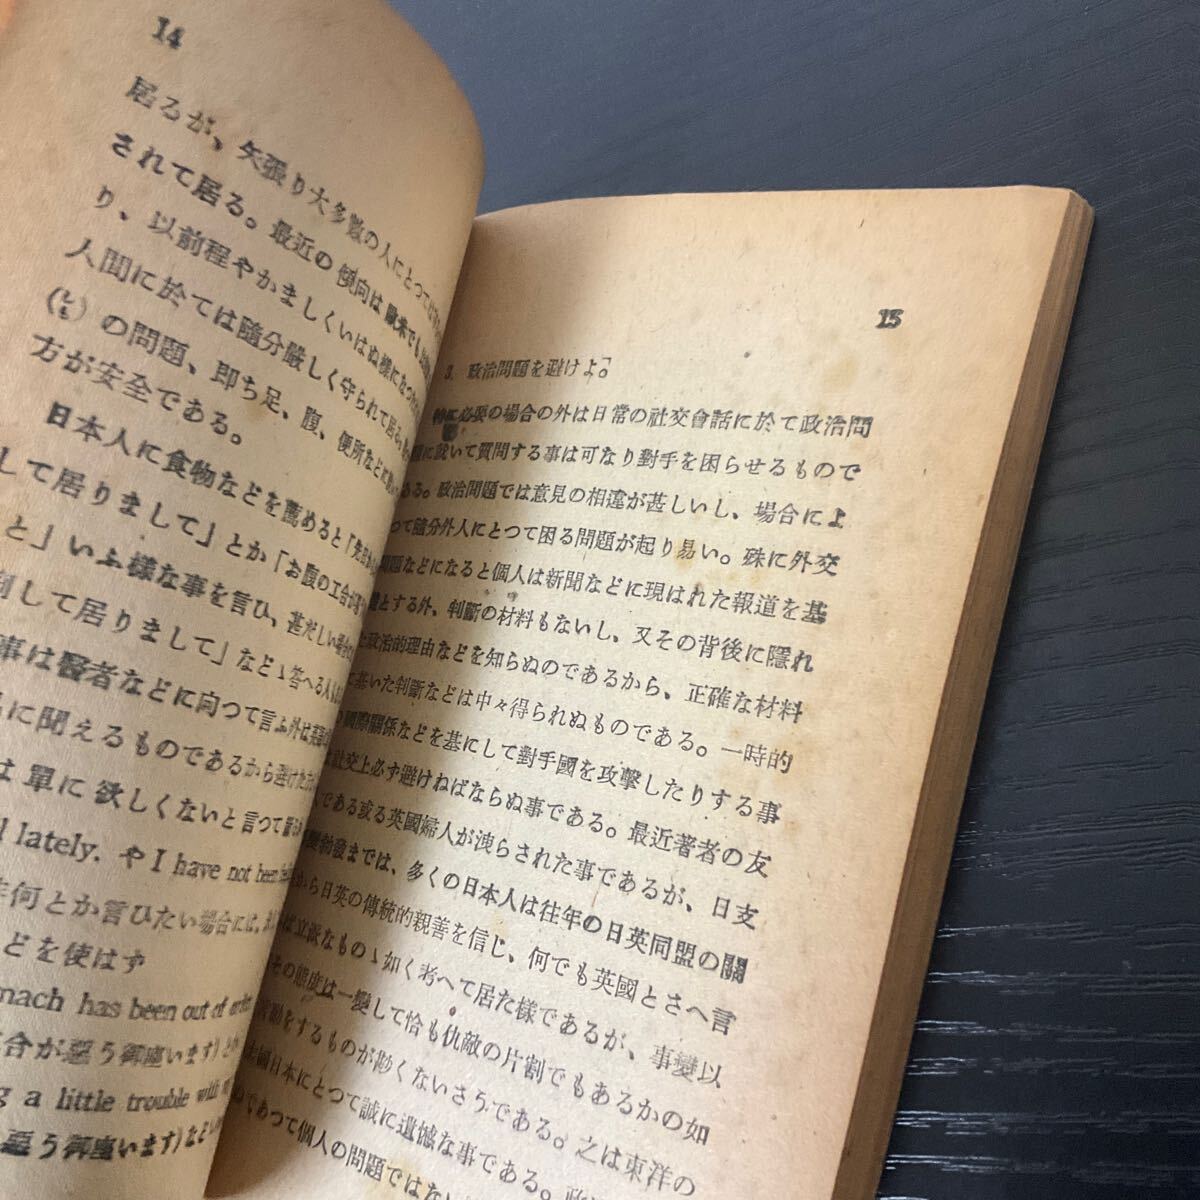 14
居るが、矢張り大多数の人にとつて
されて居る。最近の傾向は歐米でも
り、以前程やかましくいはぬ様になつた
人間に於ては隨分嚴しく守られて居る
の問題、即ち足、腹、便所などに
方が安全である。
日本人に食物などを薦めると「先日
して居りまして」とか「お腹の工合が
と」いふ様な事を言ひ、甚だしい場合
して居りまして」などゝ答へる人
事は醫者などに向つて言ふ外は
に聞えるものであるから避け
は單に欲しくないと言つて
lately. や I have not been
何とか言ひたい場合には、
どを使はず
has been out of
合が惡う御座います)
a little trouble with
惡う御座います)など
15
3. 政治問題を避けよ。
必要の場合の外は日常の社交會話に於て政治問
に就いて質問する事は可なり對手を困らせるもので
ある。政治問題では意見の相違が甚しいし、場合によ
つて隨分外人にとつて困る問題が起り易い。殊に外交
問題などになると個人は新聞などに現はれた報道を基
とする外、判斷の材料もないし、又その背後に隱れ
政治的理由などを知らぬのであるから、正確な材料
基いた判斷などは中々得られぬものである。一時的
國際關係などを基にして對手國を攻擊したりする事
社交上必ず避けねばならぬ事である。最近著者の友
である或る英國婦人が洩らされた事であるが、日支
勃發までは、多くの日本人は往年の日英同盟の關
から日英の傳統的親善を信じ、何でも英國とさへ言
ば立派なものゝ如く考へて居た様であるが、事變以
その態度は一變して恰も仇敵の片割でもあるかの如
をするものが尠くないさうである。之は東洋の
國日本にとつて誠に遺憾な事である。
であつて個人の問題ではない